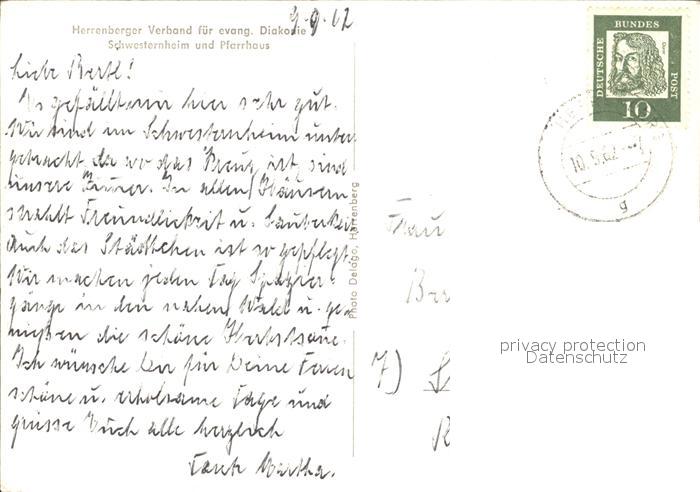 9.9.62
Herrenberger Verband für evang. Diakonie
Schwesternheim und Pfarrhaus
Liebe Bertl!
Es gefällt mir hier sehr gut.
Wir sind im Schwesternheim unter-
gebracht da wo das Kreuz ist, sind
unsere Zimmer. In allen Häusern
strahlt Freundlichkeit u. Sauberkeit
Auch das Städtchen ist so gepflegt.
Wir machen jeden Tag Spazier-
gänge in den nahen Wald u. ge-
nießen die schöne Herbstsonne.
Ich wünsche Dir für Deine Ferien
schöne u. erholsame Tage und
grüsse Euch alle herzlich
Tante Martha.
Photo Delago, Herrenberg
DEUTSCHE
BUNDES
POST
Dürer
10
10.9.62
g
Frau
Ber
7)
privacy protection
Datenschutz